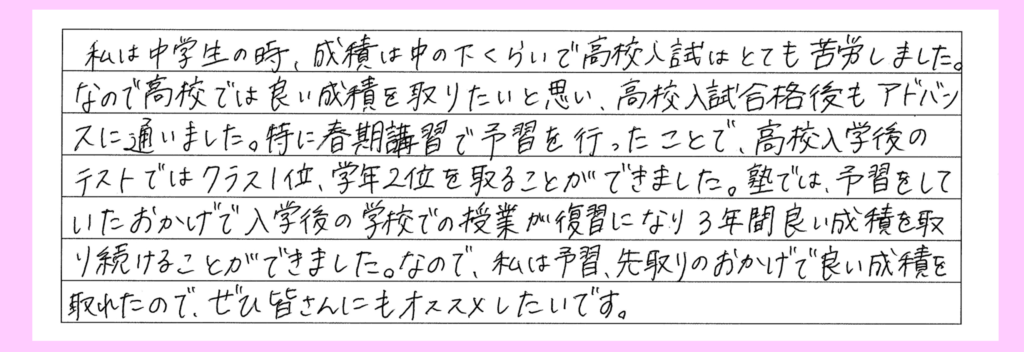 私は中学生の時、成積は中の下くらいで高校入試はとても苦労しました。
なので高校では良い成積を取りたいと思い、高校入試合格後もアドバン
スに通いました。特に春期講習で予習を行ったことで、高校入学後の
テストではクラス1位、学年2位を取ることができました。塾では、予習をして
いたおかげで入学後の学校での授業が復習になり3年間良い成積を取
り続けることができました。なので、私は予習、先取りのおかげで良い成積を
取れたので、ぜひ皆さんにもオススメしたいです。